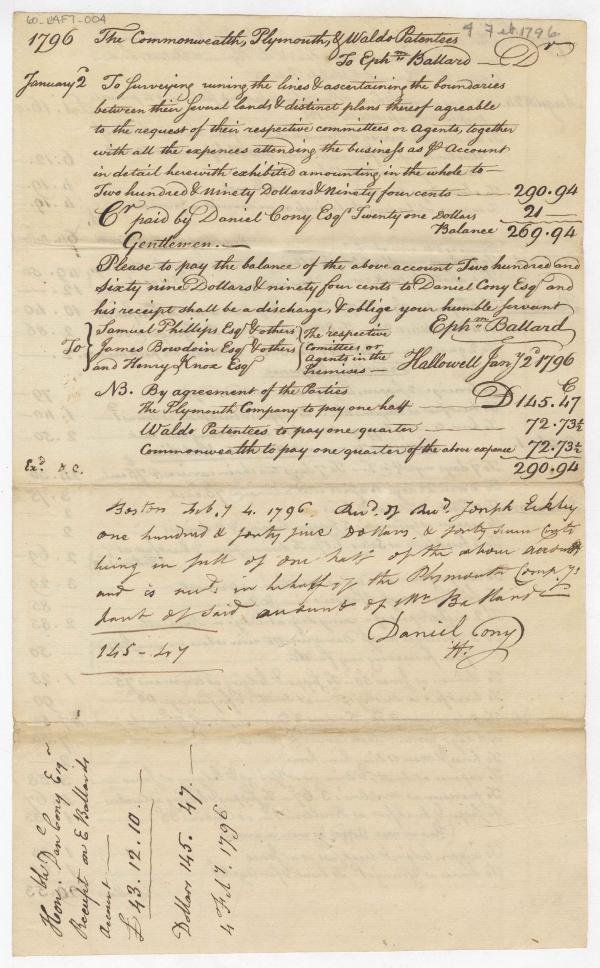 60-LAFT-004
4 Feb. 1796
1796 The Commonwealth, Plymouth, & Waldo Patentees
To Ephm Ballard — Dr
January 2d To Surveying runing the lines & ascertaining the boundaries
between their several lands & distinct plans thereof agreable
to the request of their respective committees or Agents, together
with all the expences attending the business as pr Account
in detail herewith exhibited amounting in the whole to —
Two hundred & Ninety Dollars & Ninety four cents — 290.94
Cr paid by Daniel Cony Esqr Twenty one Dollars 21 —
Balance 269.94
Gentlemen. —
Please to pay the balance of the above account Two hundred and
Sixty nine Dollars & ninety four cents to Daniel Cony Esqr and
his receipt shall be a discharge, & oblige your humble servant
Ephm Ballard
To
Samuel Phillips Esqr & others
James Bowdoin Esqr & others
and Henry Knox Esqr
The respective
Comittees or
Agents in the
Premises —
Hallowell Jany 2d 1796
NB. By agreement of the Parties C
The Plymouth Company to pay one half D 145.47
Waldo Patentees to pay one quarter — 72.73½
Commonwealth to pay one quarter of the above expence 72.73½
290.94
Exd D.C.
Boston Feby 4. 1796. Recd. of Revd. Joseph Eckley
one hundred & forty five Dollars, & forty seven Cents
being in full of one half of the above account
and is recd. in behalf of the Plymouth Compys
part of said account of Mr Ballard
Daniel Cony
145-47
Honble. Danl Cony Esqr
Receipt on E Ballards
Account —
£ 43.12.10. —
Dollars 145. 47. —
4 Feby. 1796